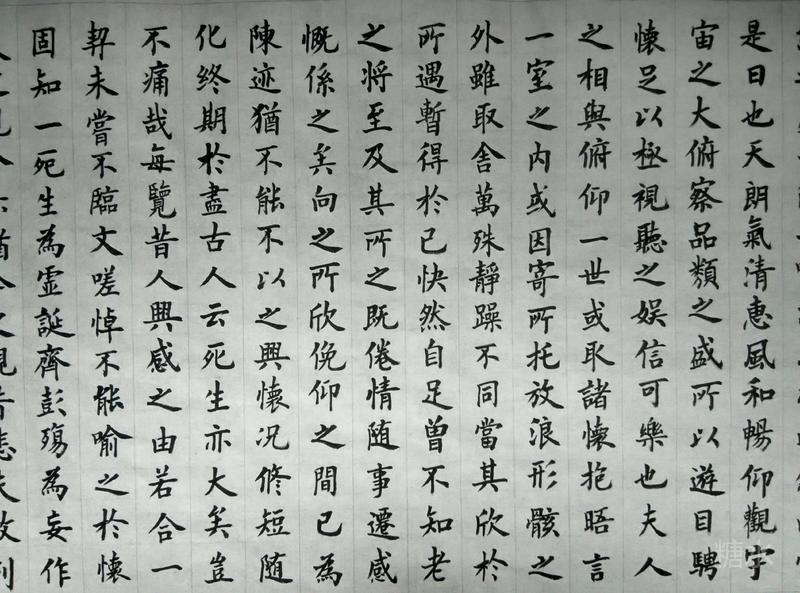 是日也天朗氣清惠風和暢仰觀宇
宙之大俯察品類之盛所以遊目騁
懷足以極視聽之娱信可樂也夫人
之相與俯仰一世或取諸懷抱晤言
一室之内或因寄所托放浪形骸之
外雖取舍萬殊靜躁不同當其欣於
所遇暫得於己快然自足曾不知老
之将至及其所之既倦情随事遷感
慨係之矣向之所欣俛仰之間已為
陳迹猶不能不以之興懷况修短随
化終期於盡古人云死生亦大矣豈
不痛哉每覽昔人興感之由若合一
契未嘗不臨文嗟悼不能喻之於懷
固知一死生為虚誕齊彭殤為妄作